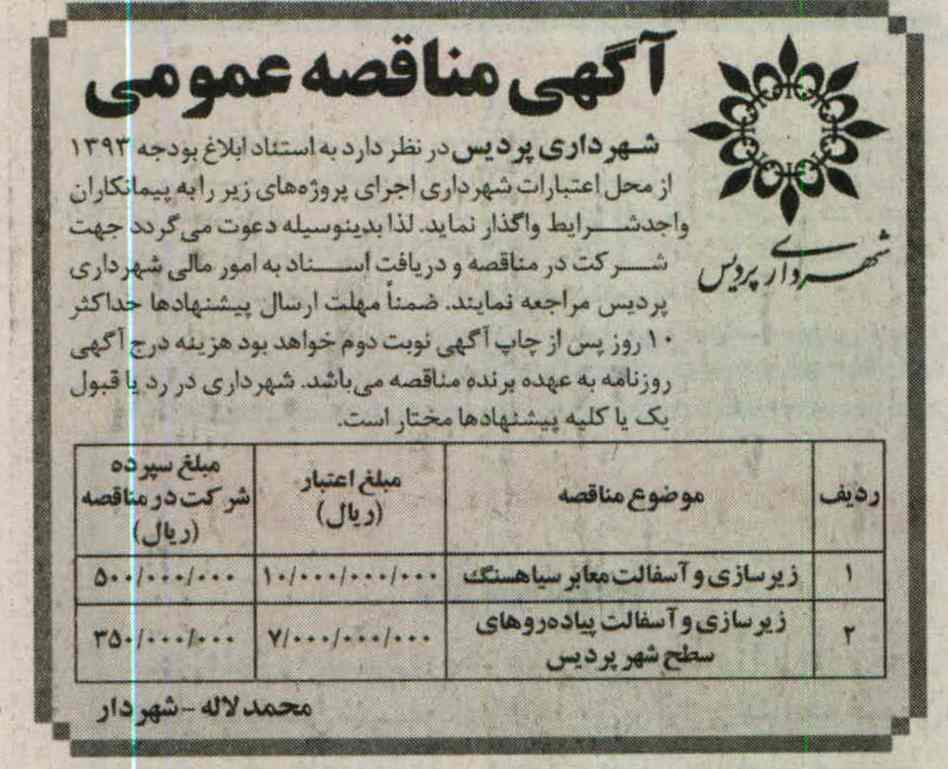 آگهی مناقصه عمومی
شهرداری پردیس
شهرداری پردیس در نظر دارد به استناد ابلاغ بودجه ۱۳۹۳
از محل اعتبارات شهرداری اجرای پروژه‌های زیر را به پیمانکاران
واجدشرایط واگذار نماید. لذا بدینوسیله دعوت می‌گردد جهت
شرکت در مناقصه و دریافت اسناد به امور مالی شهرداری
پردیس مراجعه نمایند. ضمناً مهلت ارسال پیشنهادها حداکثر
۱۰ روز پس از چاپ آگهی نوبت دوم خواهد بود هزینه درج آگهی
روزنامه به عهده برنده مناقصه می‌باشد. شهرداری در رد یا قبول
یک یا کلیه پیشنهادها مختار است.
ردیف موضوع مناقصه مبلغ اعتبار (ریال) مبلغ سپرده شرکت در مناقصه (ریال)
۱ زیرسازی و آسفالت معابر سیاهسنگ ۱۰/۰۰۰/۰۰۰/۰۰۰ ۵۰۰/۰۰۰/۰۰۰
۲ زیرسازی و آسفالت پیاده‌روهای سطح شهر پردیس ۷/۰۰۰/۰۰۰/۰۰۰ ۳۵۰/۰۰۰/۰۰۰
محمد لاله - شهردار